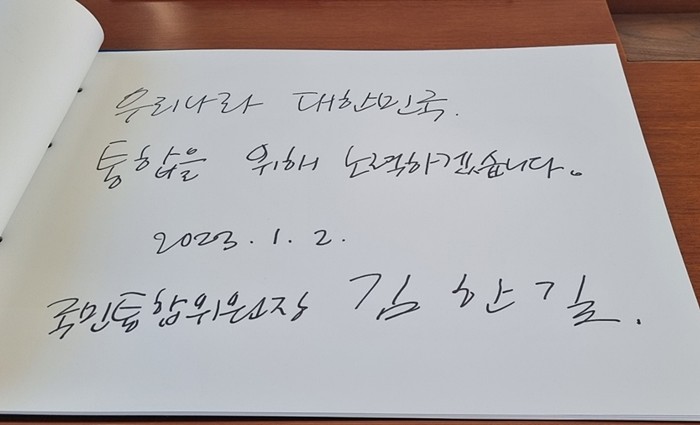 우리나라 대한민국.
통합을 위해 노력하겠습니다.
2023. 1. 2.
국민통합위원장 김한길.